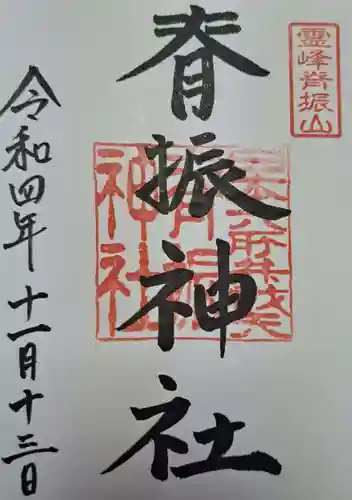 霊峰脊振山
脊振神社
令和四年十一月十三日